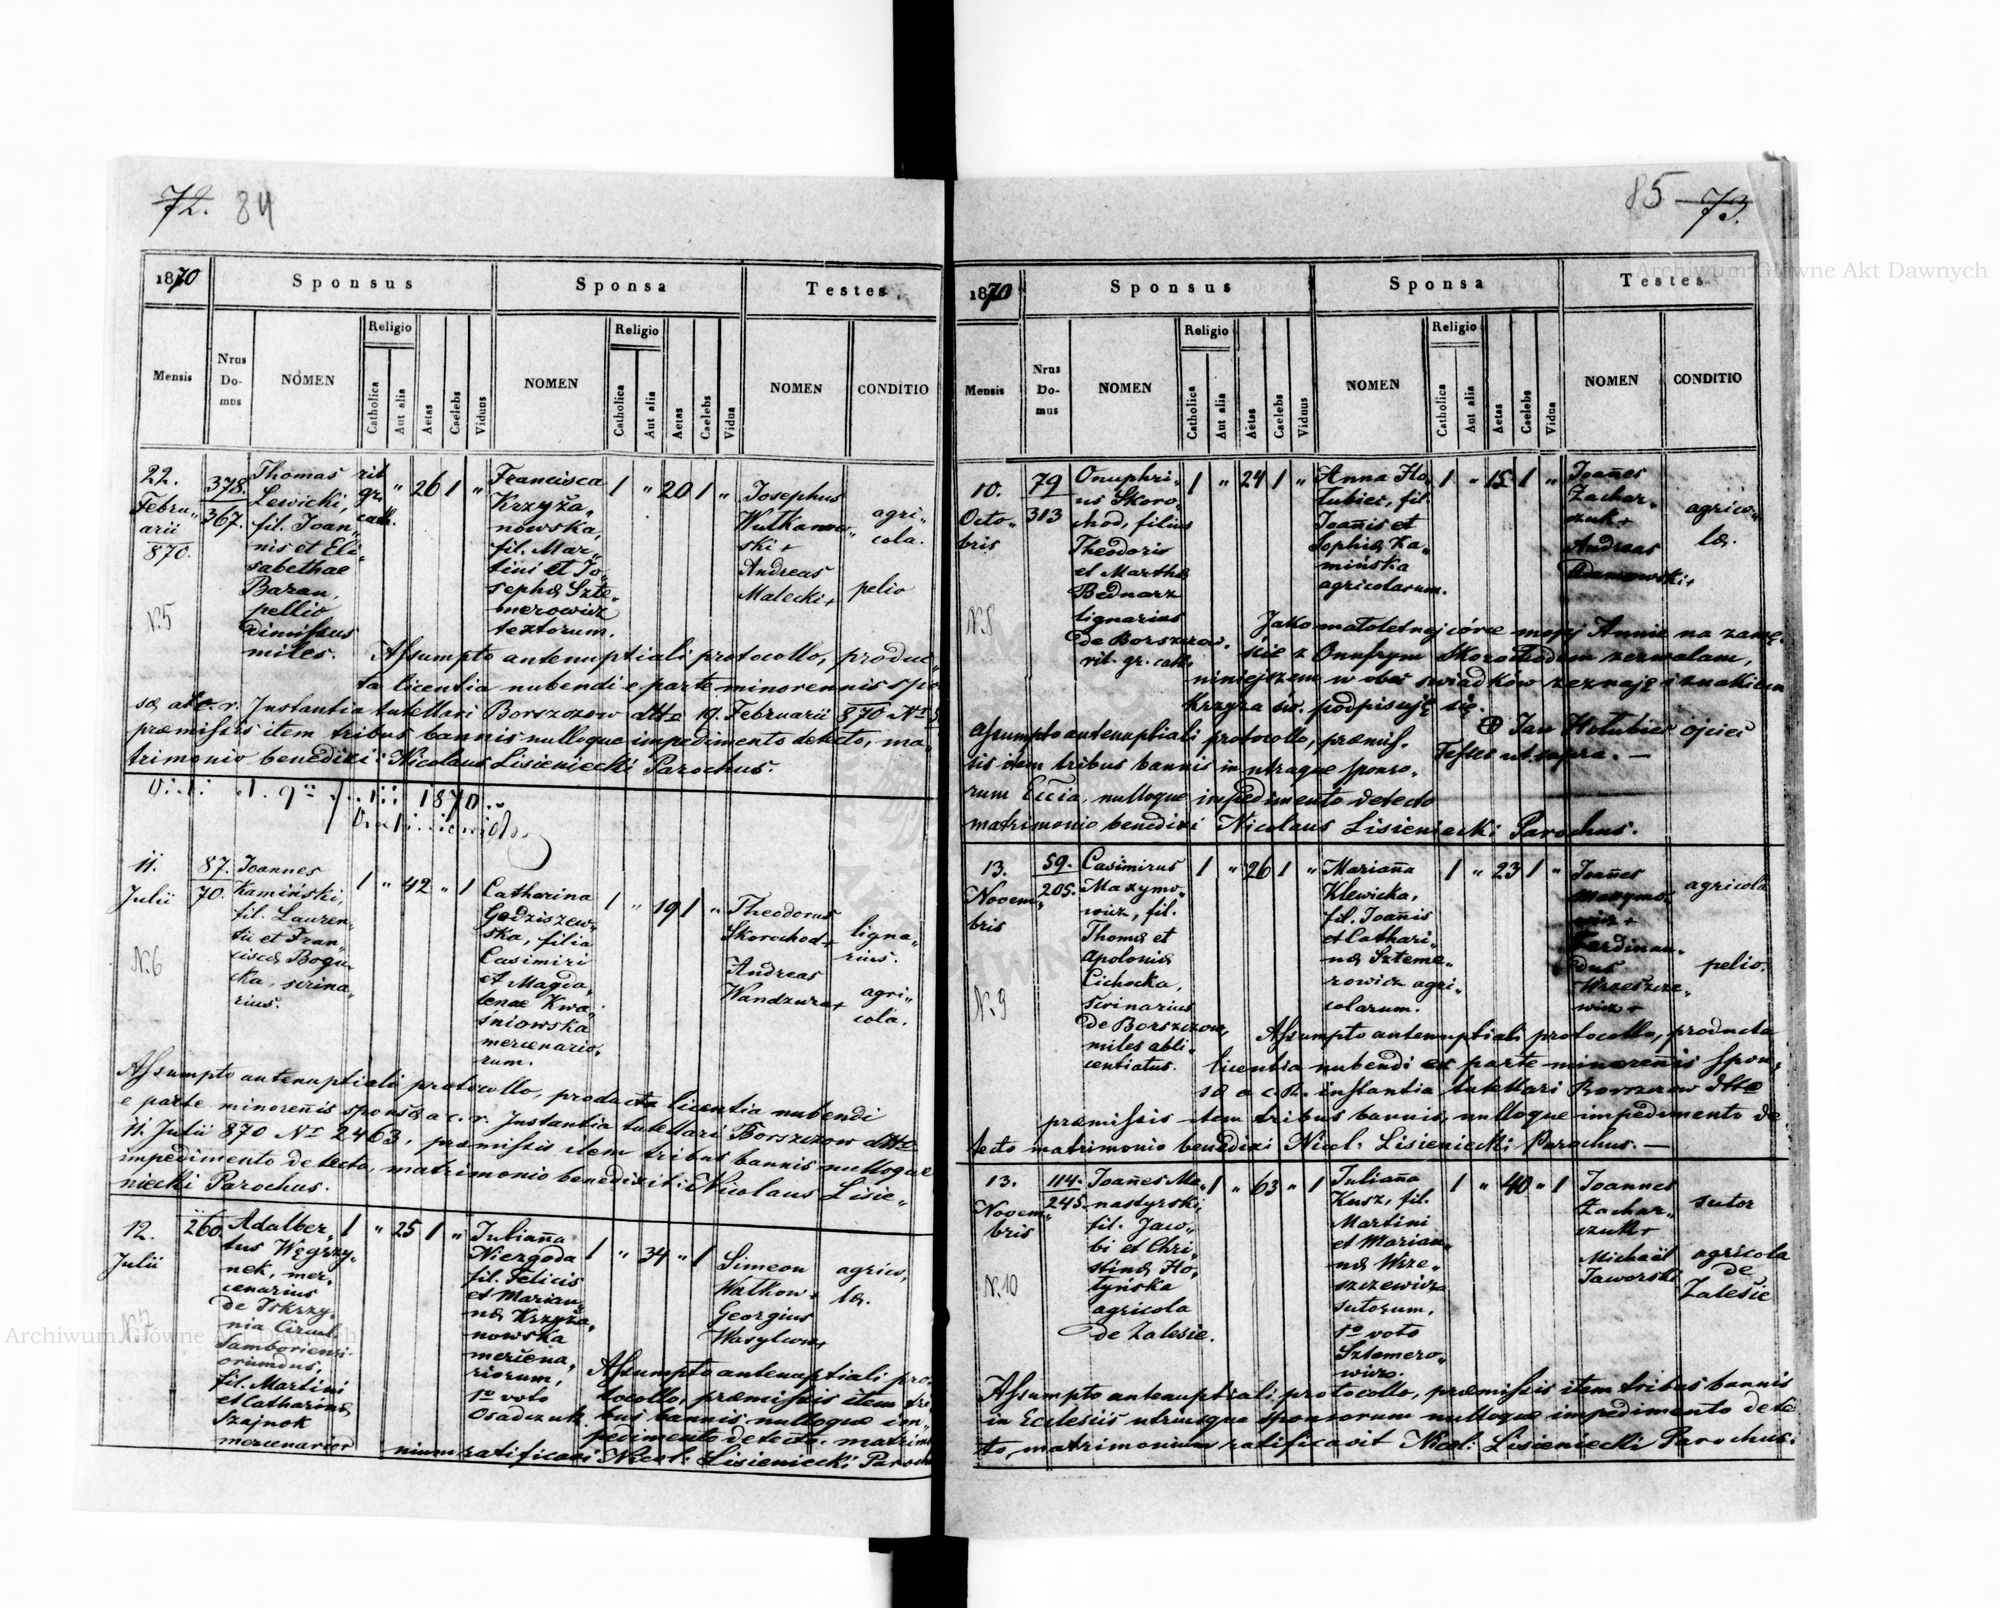 72. 84
1870
Sponsus
Sponsa
Testes
Mensis
Nrus Do- mus
NOMEN
Religio
Catholica
Aut alia
Aetas
Caelebs
Viduus
NOMEN
Religio
Catholica
Aut alia
Aetas
Caelebs
Vidua
NOMEN
CONDITIO
22.
Febru„
arii
870.
N.5
378.
367.
Thomas
Lewicki,
fil. Joan„
nis et Eli„
sabethae
Baran,
pellio
dimissus
miles.
rit.
gr.
cath.
" 26 1 "
Francisca
Krzyża„
nowska,
fil. Mar„
tini et Jo„
sephæ Szte„
merowicz
textorum.
1 " 20 1 "
Josephus
Wutkanow„
ski +
Andreas
Malecki +
agri„
cola.
pelio
Assumpto antenuptiali protocollo, produc„
ta licentia nubendi e parte minorennis spon
sæ at c. r. Instantia tutellari Borszczow dtto 19. Februarii 870 Nr
præmissis item tribus bannis nulloque impedimento detecto, ma„
trimonio benedixi: Nicolaus Lisieniecki Parochus.
1870.
11.
Julii
N.6
87.
70.
Joannes
Kamiński,
fil. Lauren„
tii et Fran„
ciscæ Bogu„
cka, scrina„
rius.
1 " 42 " 1
Catharina
Godziszew„
ska, filia
Casimiri
et Magda„
lenae Kwa„
śniowska
mercenario„
rum.
1 " 19 1 "
Theodorus
Skorochod +
Andreas
Wandzura +
ligna„
rius.
agri„
cola.
Assumpto antenuptiali protocollo, producta licentia nubendi
e parte minoreñis sponsæ a c. r. Instantia tutellari Borszczow dtto
11. Julii 870 Nr 2463, præmissis item tribus bannis nulloque
impedimento detecto, matrimonio benedixit: Nicolaus Lisie„
niecki Parochus.
12.
Julii
N.7
260.
Adalber„
tus Węgrzy„
nek, mer„
cenarius
de Iskrzy„
nia Circul.
Samboriensi
oriundus,
fil. Martini
et Catharinæ
Szajnok
mercenarior
1 " 25 1 "
Juliaña
Niezgoda
fil. Felicis
et Marian„
næ Krzyża„
nowska
mercena„
riorum,
1º voto
Osadczuk.
1 " 34 " 1
Simeon
Watkow +
Georgius
Wasylcow +
agrico„
læ.
Assumpto antenuptiali pro„
tocollo, præmissis item tri
bus bannis nulloque im„
pedimento detecto, matrimo
nium ratificavi Nicol: Lisieniecki Paroch
85 73.
1870
Sponsus
Sponsa
Testes
Mensis
Nrus Do- mus
NOMEN
Religio
Catholica
Aut alia
Aetas
Caelebs
Viduus
NOMEN
Religio
Catholica
Aut alia
Aetas
Caelebs
Vidua
NOMEN
CONDITIO
10.
Octo„
bris
N.8
79
313
Onuphri„
us Skoro„
chod, filius
Theodoris
et Marthæ
Bednarz
lignarius
de Borszczow.
rit. gr. cath.
1 " 24 1 "
Anna Ho„
łubiec, fil.
Joañis et
Sophiæ Ka„
mińska
agricolarum.
1 " 15 1 "
Joañes
Zachar„
czuk +
Andreas
Adamowski +
agrico„
læ.
Jako małoletniej córce mojej Annie na zamę„
ście z Onufrym Skorochodem zezwalam,
niniejszem w obec świadków zeznaję i znakiem
krzyża św. podpisuję się.
⊕ Jan Hołubiec ojciec
Testes ut supra. —
Assumpto antenuptiali protocollo, præmis„
sis item tribus bannis in utraque sponso„
rum Eccia, nulloque impedimento detecto
matrimonio benedixi Nicolaus Lisieniecki Parochus.
13.
Novem„
bris
N.9
59.
205.
Casimirus
Maxymo„
wicz, fil.
Thomæ et
Apoloniæ
Cichocka,
scrinarius
de Borszczow,
miles abli„
centiatus.
1 " 26 1 "
Mariaña
Klewicka,
fil. Joañis
et Cathari„
næ Szteme„
rowicz agri„
colarum.
1 " 23 1 "
Joañes
Maxymo„
wicz +
Ferdinan„
dus
Wrzeszcze„
wicz +
agricola
pelio.
Assumpto antenuptiali protocollo, producta
licentia nubendi ex parte minoreñis spon„
sæ a c. R. instantia tutellari Borszczow dtto
præmissis item tribus bannis, nulloque impedimento de„
tecto matrimonio benedixi Nicol: Lisieniecki Parochus. —
13.
Novem„
bris
N.10
114.
245.
Joañes Mo„
nastyrski,
fil. Jaco„
bi et Chri„
stinæ Ho„
tyńska
agricola
de Zalesie.
1 " 63 " 1
Juliaña
Kusz, fil.
Martini
et Marian„
næ Wrze„
szczewicz
sutorum,
1º voto
Sztemero„
wicz.
1 " 40 " 1
Joannes
Zachar„
czuk +
Michael
Jaworski
sutor
agricola
de
Zalesie
Assumpto antenuptiali protocollo, præmissis item tribus bannis
in Ecclesiis utriusque sponsorum nulloque impedimento dete
to matrimonium ratificavit Nicol: Lisieniecki Parochus.
Archiwum Główne Akt Dawnych
Archiwum Główne Akt Dawnych